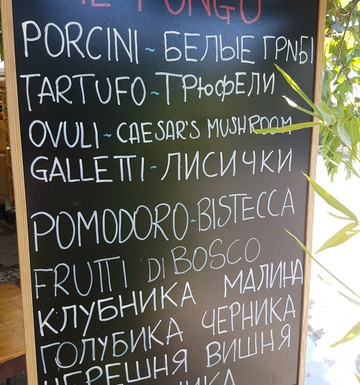 IL FUNGO
PORCINI ~ БЕЛЫЕ ГРИБІ
TARTUFO ~ ТРЮФЕЛИ
OVULI ~ CAESAR'S MUSHROOM
GALLETTI - ЛИСИЧКИ
POMODORO-BISTECCA
FRUTTI DI BOSCO
КЛУБНИКА МАЛИНА
ГОЛУБИКА ЧЕРНИКА
ЧЕРЕШНЯ ВИШНЯ